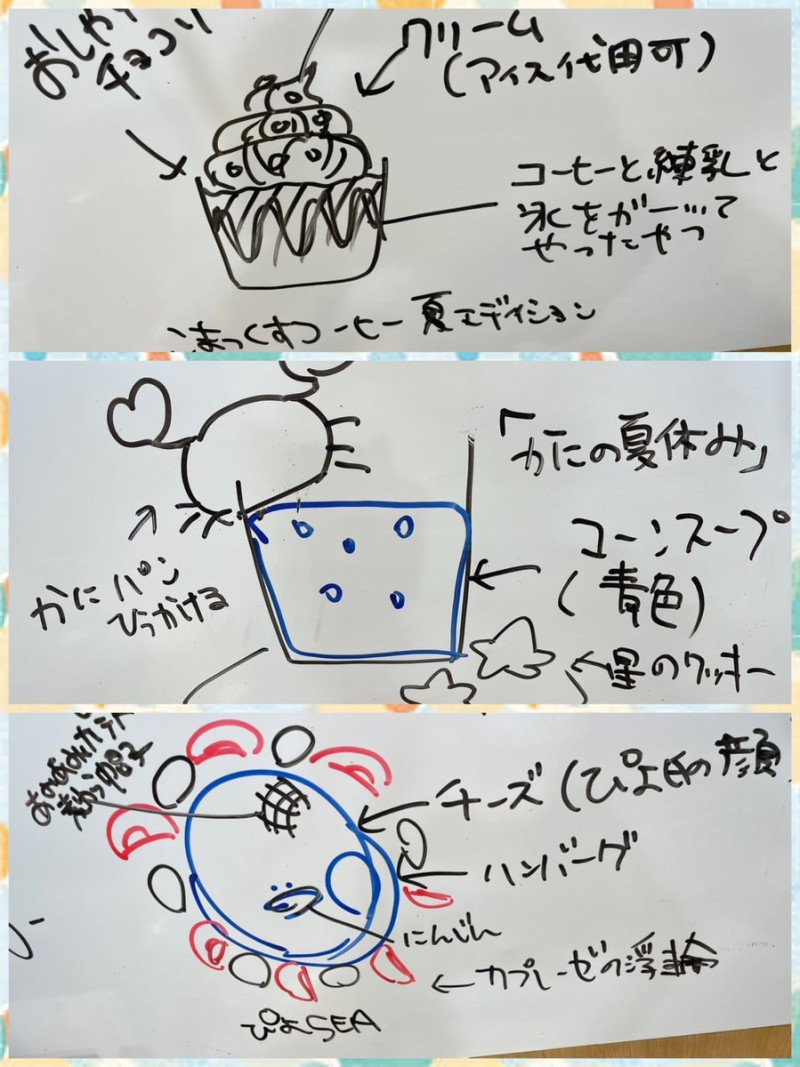 おしゃ
チョコ
クリーム
(アイス代用可)
コーヒーと練乳と
氷をガーッて
やったやつ
こまっくすコーヒー 夏エディション
「かにの夏休み」
かにパン
ひっかける
コーンスープ
(青色)
星のクッキー
チーズ (ぴよ氏の顔
ハンバーグ
にんじん
カプレーゼの浮輪
ぴよSEA